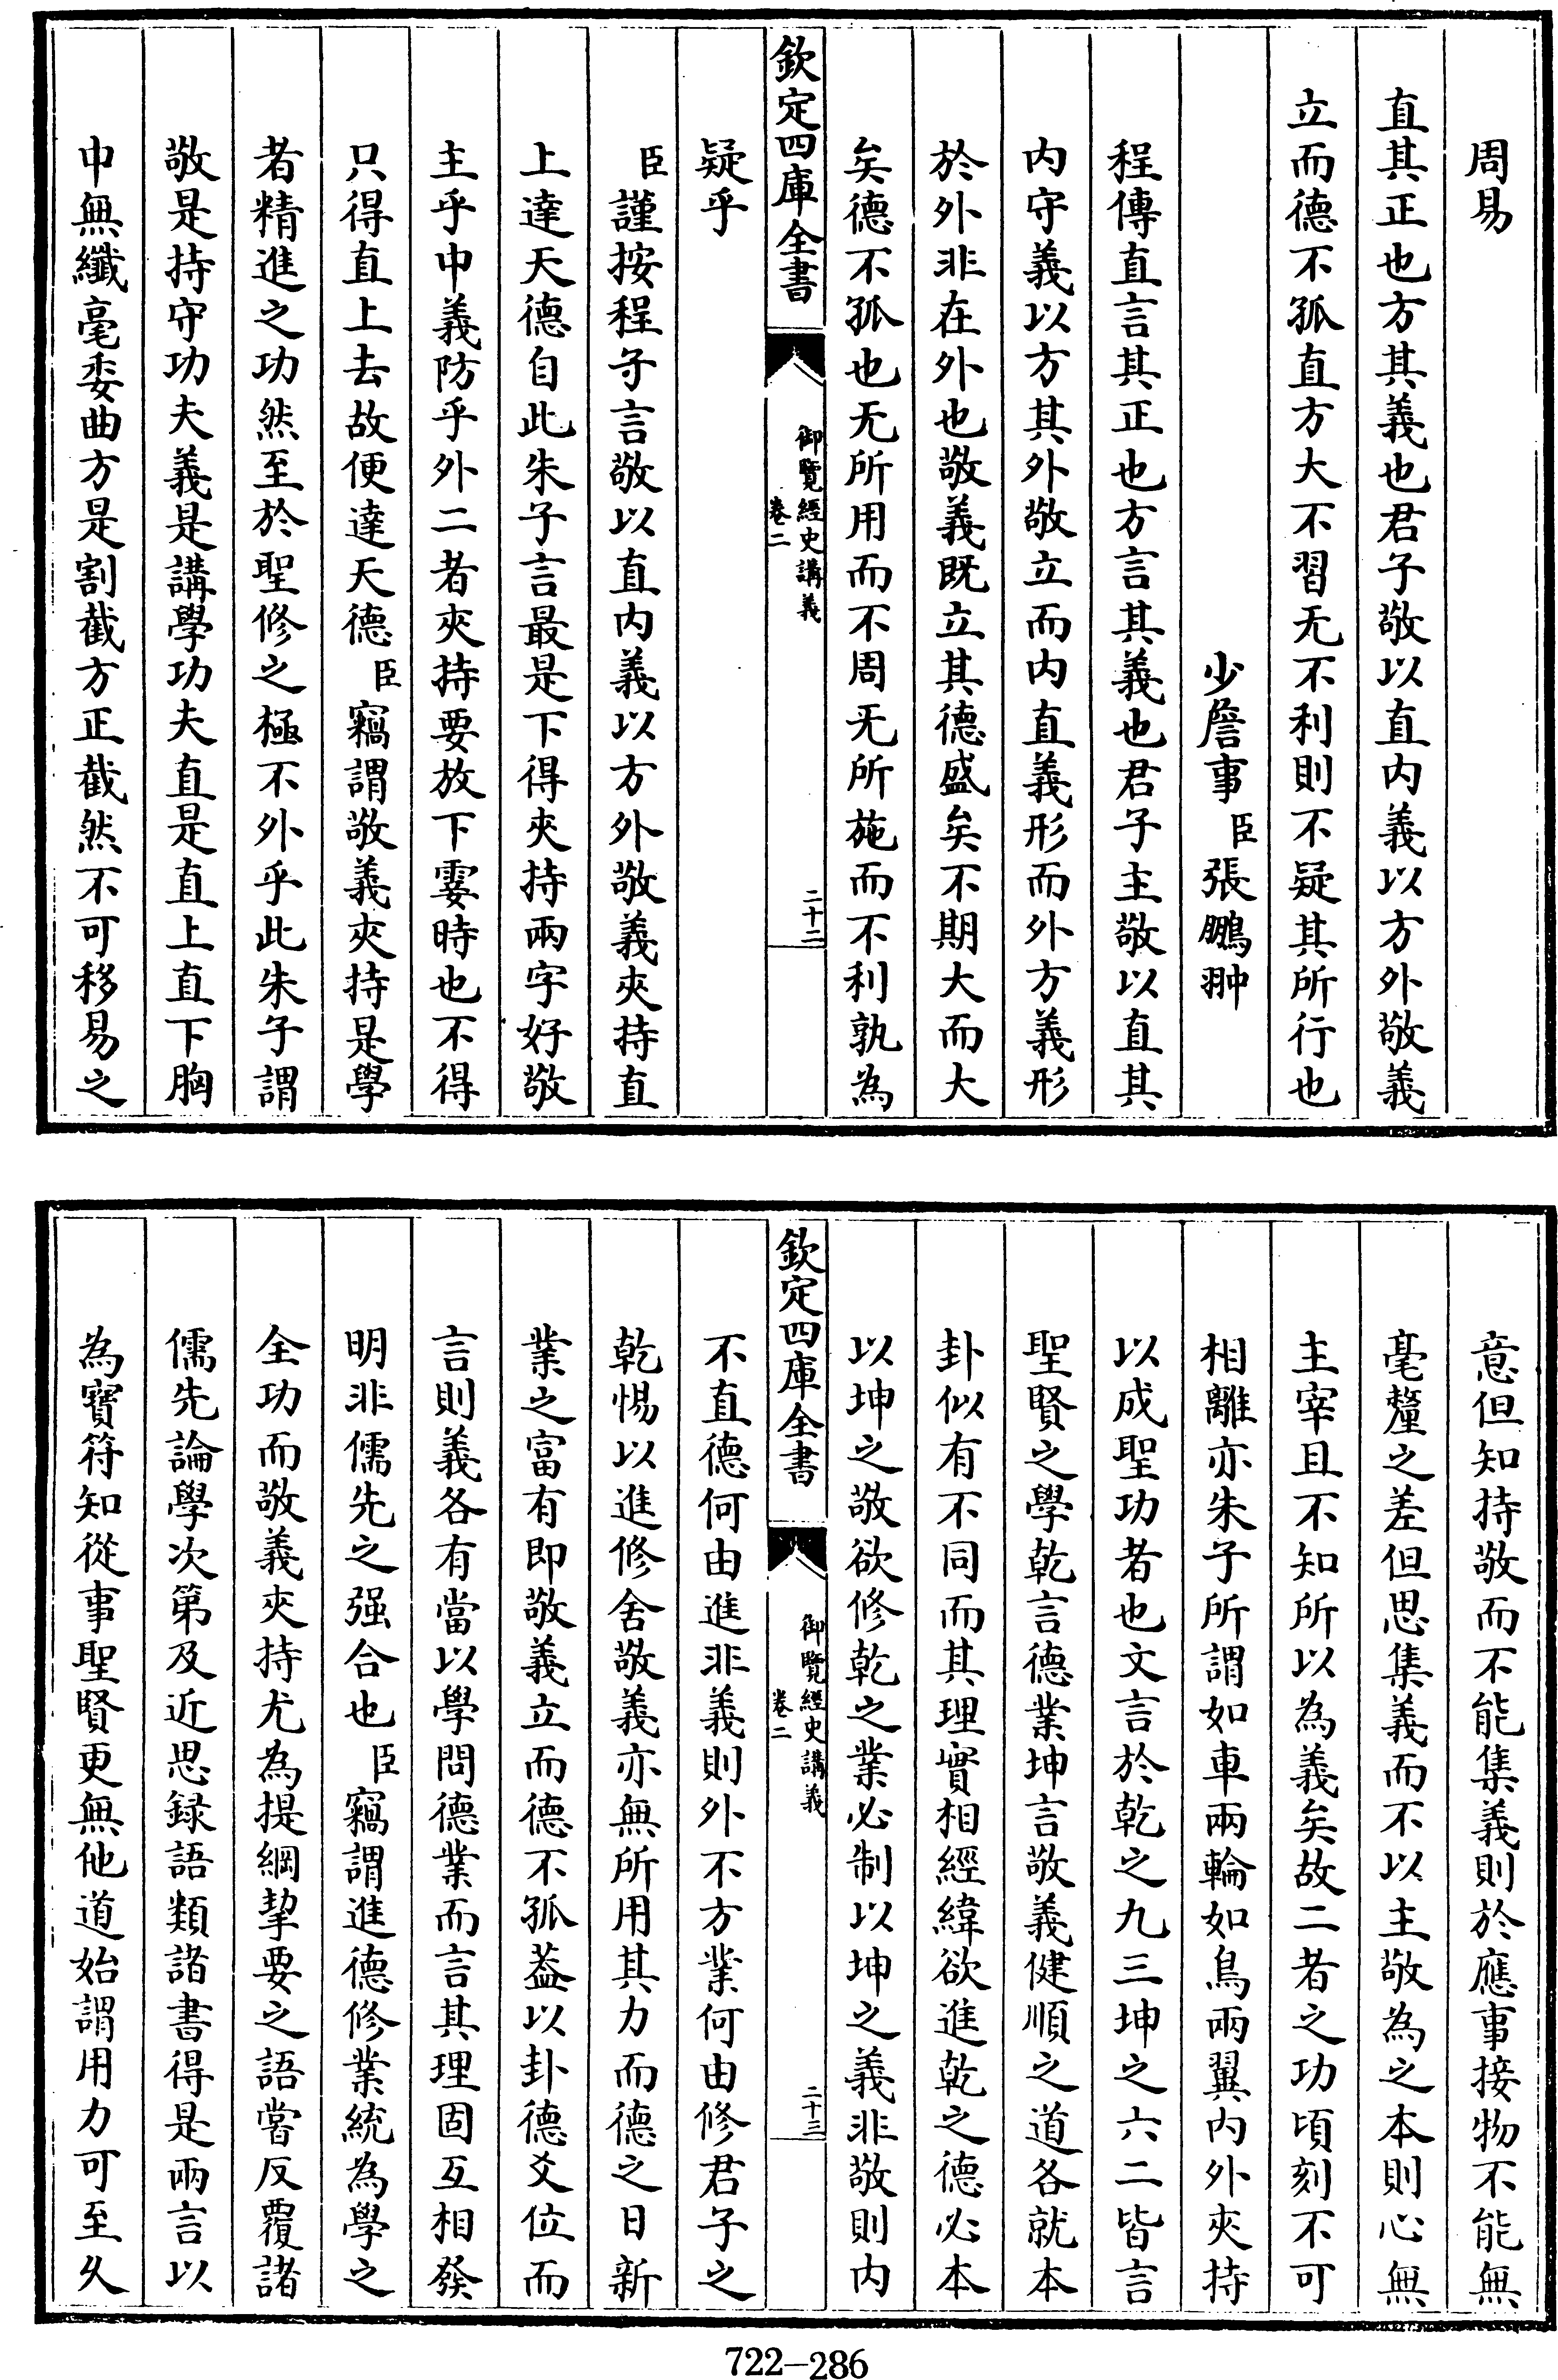 周易
直其正也方其義也君子敬以直内義以方外敬義
立而德不孤直方大不習无不利則不疑其所行也
少詹事臣張鵬翀
程傳直言其正也方言其義也君子主敬以直其
内守義以方其外敬立而内直義形而外方義形
於外非在外也敬義既立其德盛矣不期大而大
矣德不孤也无所用而不周无所施而不利孰為
欽定四庫全書
御覽經史講義
卷二
二十二
疑乎
臣謹按程子言敬以直内義以方外敬義夾持直
上達天德自此朱子言最是下得夾持兩字好敬
主乎中義防乎外二者夾持要放下霎時也不得
只得直上去故便達天德臣竊謂敬義夾持是學
者精進之功然至於聖修之極不外乎此朱子謂
敬是持守功夫義是講學功夫直是直上直下胸
中無纖毫委曲方是割截方正截然不可移易之
意但知持敬而不能集義則於應事接物不能無
毫釐之差但思集義而不以主敬為之本則心無
主宰且不知所以為義矣故二者之功頃刻不可
相離亦朱子所謂如車兩輪如鳥兩翼内外夾持
以成聖功者也文言於乾之九三坤之六二皆言
聖賢之學乾言德業坤言敬義健順之道各就本
卦似有不同而其理實相經緯欲進乾之德必本
以坤之敬欲修乾之業必制以坤之義非敬則内
欽定四庫全書
御覽經史講義
卷二
二十三
不直德何由進非義則外不方業何由修君子之
乾惕以進修舍敬義亦無所用其力而德之日新
業之富有即敬義立而德不孤葢以卦德爻位而
言則義各有當以學問德業而言其理固互相發
明非儒先之强合也臣竊謂進德修業統為學之
全功而敬義夾持尤為提綱挈要之語嘗反覆諸
儒先論學次第及近思録語類諸書得是兩言以
為寳符知從事聖賢更無他道始謂用力可至久
722-286